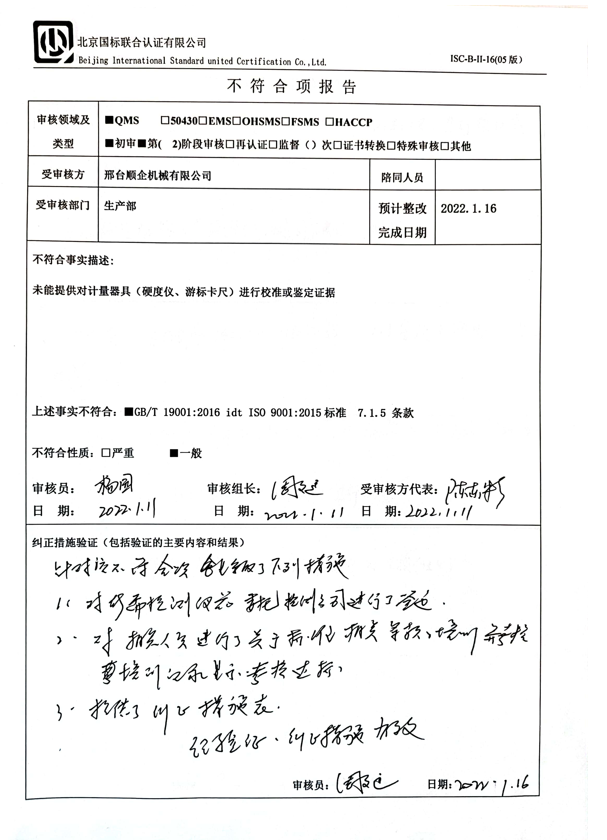 北京国标联合认证有限公司
Beijing International Standard united Certification Co.,Ltd.
ISC-B-II-16(05 版)
不符合项报告
审核领域及类型
■QMS □50430□EMS□OHSMS□FSMS □HACCP
■初审■第( 2)阶段审核□再认证□监督（）次□证书转换□特殊审核□其他
受审核方 邢台顺企机械有限公司 陪同人员
受审核部门 生产部 预计整改完成日期 2022.1.16
不符合事实描述:
未能提供对计量器具（硬度仪、游标卡尺）进行校准或鉴定证据
上述事实不符合: ■GB/T 19001:2016 idt ISO 9001:2015标准 7.1.5 条款
不符合性质: □严重 ■一般
审核员: 审核组长: 受审核方代表:
日 期: 2022.1.11 日 期: 2022.1.11 日 期: 2022.1.11
纠正措施验证（包括验证的主要内容和结果）
针对该不符合项 采取了下列措施
1、对所有检测仪器 委托检测公司进行了鉴定.
2、对相关人员进行了关于标准 相关条款 培训 并考核
培训记录显示 考核达标;
3、提供了纠正措施表.
经验证,纠正措施有效
审核员: 日期: 2022.1.16